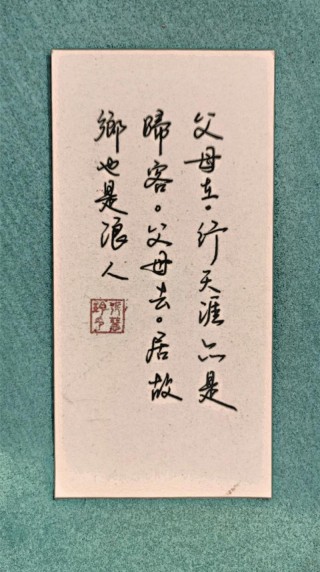 父母在。行天涯亦是
歸客。父母去。居故
鄉也是浪人